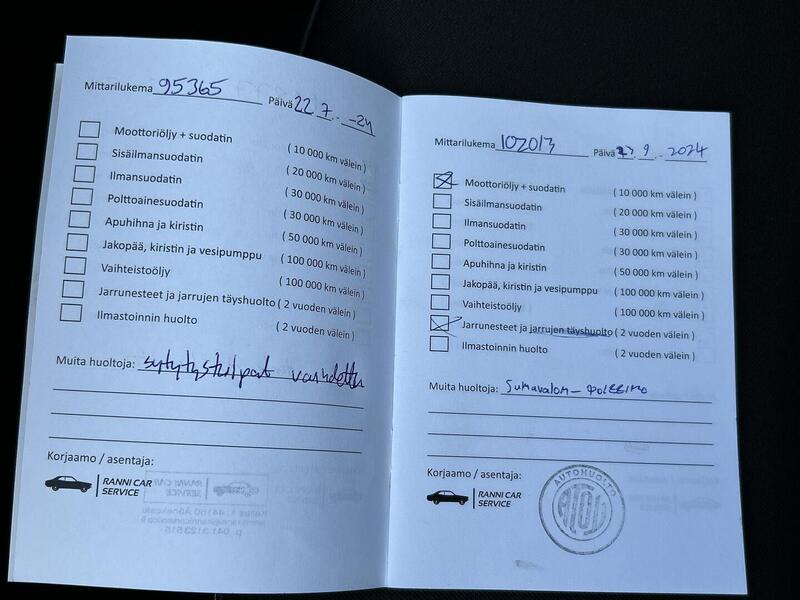 Mittarilukema 95365 Päivä 22.7.-24
Moottoriöljy + suodatin ( 10 000 km välein )
Sisäilmansuodatin ( 20 000 km välein )
Ilmansuodatin ( 30 000 km välein )
Polttoainesuodatin ( 30 000 km välein )
Apuhihna ja kiristin ( 50 000 km välein )
Jakopää, kiristin ja vesipumppu ( 100 000 km välein )
Vaihteistoöljy ( 100 000 km välein )
Jarrunesteet ja jarrujen täyshuolto ( 2 vuoden välein )
Ilmastoinnin huolto ( 2 vuoden välein )
Muita huoltoja: sytytystulpat vaihdettu
Korjaamo / asentaja:
RANNI CAR
SERVICE
Mittarilukema 102013 Päivä .9.-2024
Moottoriöljy + suodatin ( 10 000 km välein )
Sisäilmansuodatin ( 20 000 km välein )
Ilmansuodatin ( 30 000 km välein )
Polttoainesuodatin ( 30 000 km välein )
Apuhihna ja kiristin ( 50 000 km välein )
Jakopää, kiristin ja vesipumppu ( 100 000 km välein )
Vaihteistoöljy ( 100 000 km välein )
Jarrunesteet ja jarrujen täyshuolto ( 2 vuoden välein )
Ilmastoinnin huolto ( 2 vuoden välein )
Muita huoltoja: Sumuvalon-
Korjaamo / asentaja:
RANNI CAR
SERVICE
AUTOHUOLTO